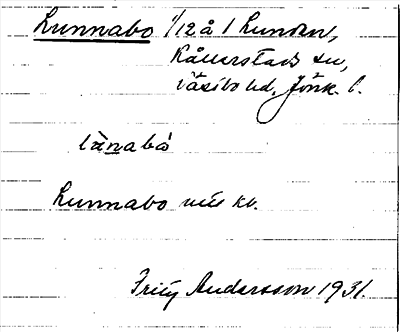 Lunnabo 1/12 å 1 Lunden,
Kållerstads sn,
Västbo hd, Jönk. l.
lànabó
Lunnabo kv.
Fritz Andersson 1931.